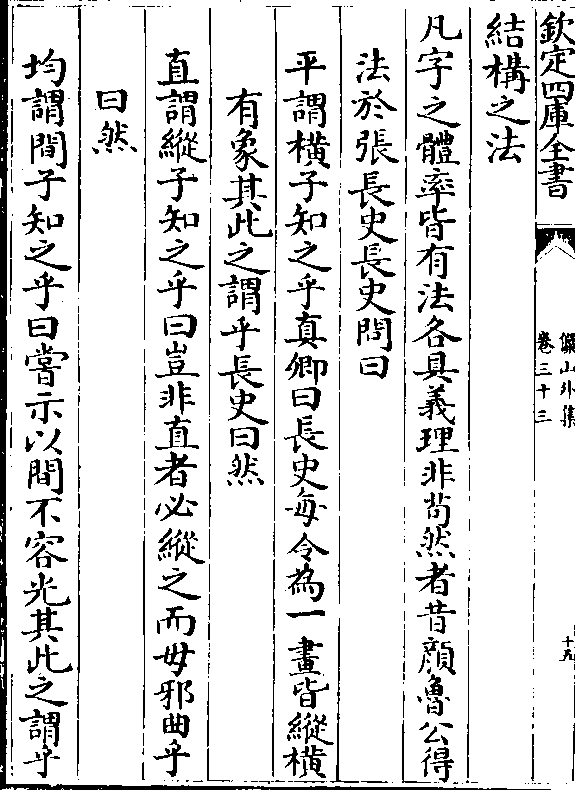 欽定四庫全書
儼山外集
卷三十三
十九
結構之法
凡字之體率皆有法各具義理非苟然者昔顔魯公得
法於張長史長史問曰
平謂横子知之乎真卿曰長史每令為一畫皆縱横
有象其此之謂乎長史曰然
直謂縱子知之乎曰豈非直者必縱之而毋邪曲乎
曰然
均謂間子知之乎曰嘗示以間不容光其此之謂乎